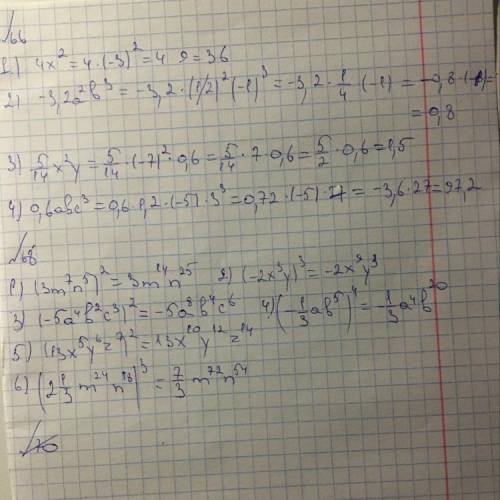 №66
1) 4x² = 4 · (-3)² = 4 · 9 = 36
2) -3,2a²b³ = -3,2 · (1/2)² (-1)³ = -3,2 · 1/4 · (-1) = -0,8 · (-1) =
= 0,8
3) 5/14 x²y = 5/14 · (-7)² · 0,6 = 5/14 · 7 · 0,6 = 5/2 · 0,6 = 1,5
4) 0,6abc³ = 0,6 · 1,2 · (-5) · 3³ = 0,72 · (-5) · 27 = -3,6 · 27 = 97,2
№68
1) (3m⁷n⁵)² = 3m¹⁴n²⁵ 2) (-2x³y)³ = -2x⁹y³
3) (-5a⁴b²c³)² = -5a⁸b⁴c⁶ 4) (-1/3 ab⁵)⁴ = -1/3 a⁴b²⁰
5) (13x⁵y⁶z⁷)² = 13x¹⁰y¹²z¹⁴
6) (2 1/3 m²⁴n¹⁸)³ = 7/3 m⁷²n⁵⁴